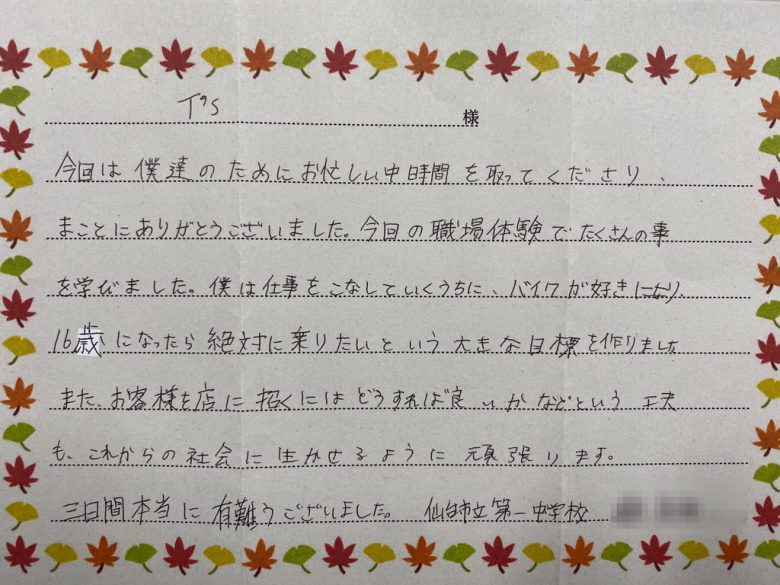 T's 様
今回は僕達のためにお忙しい中時間を取ってくださり、
まことにありがとうございました。今回の職場体験でたくさんの事
を学びました。僕は仕事をこなしていくうちに、バイクが好きになり、
16歳になったら絶対に乗りたいという大きな目標を作りました
また、お客様を店に招くにはどうすれば良いかなどという工夫
も、これからの社会に生かせるように頑張ります。
三日間本当に有難うございました。 仙台市立第一中学校